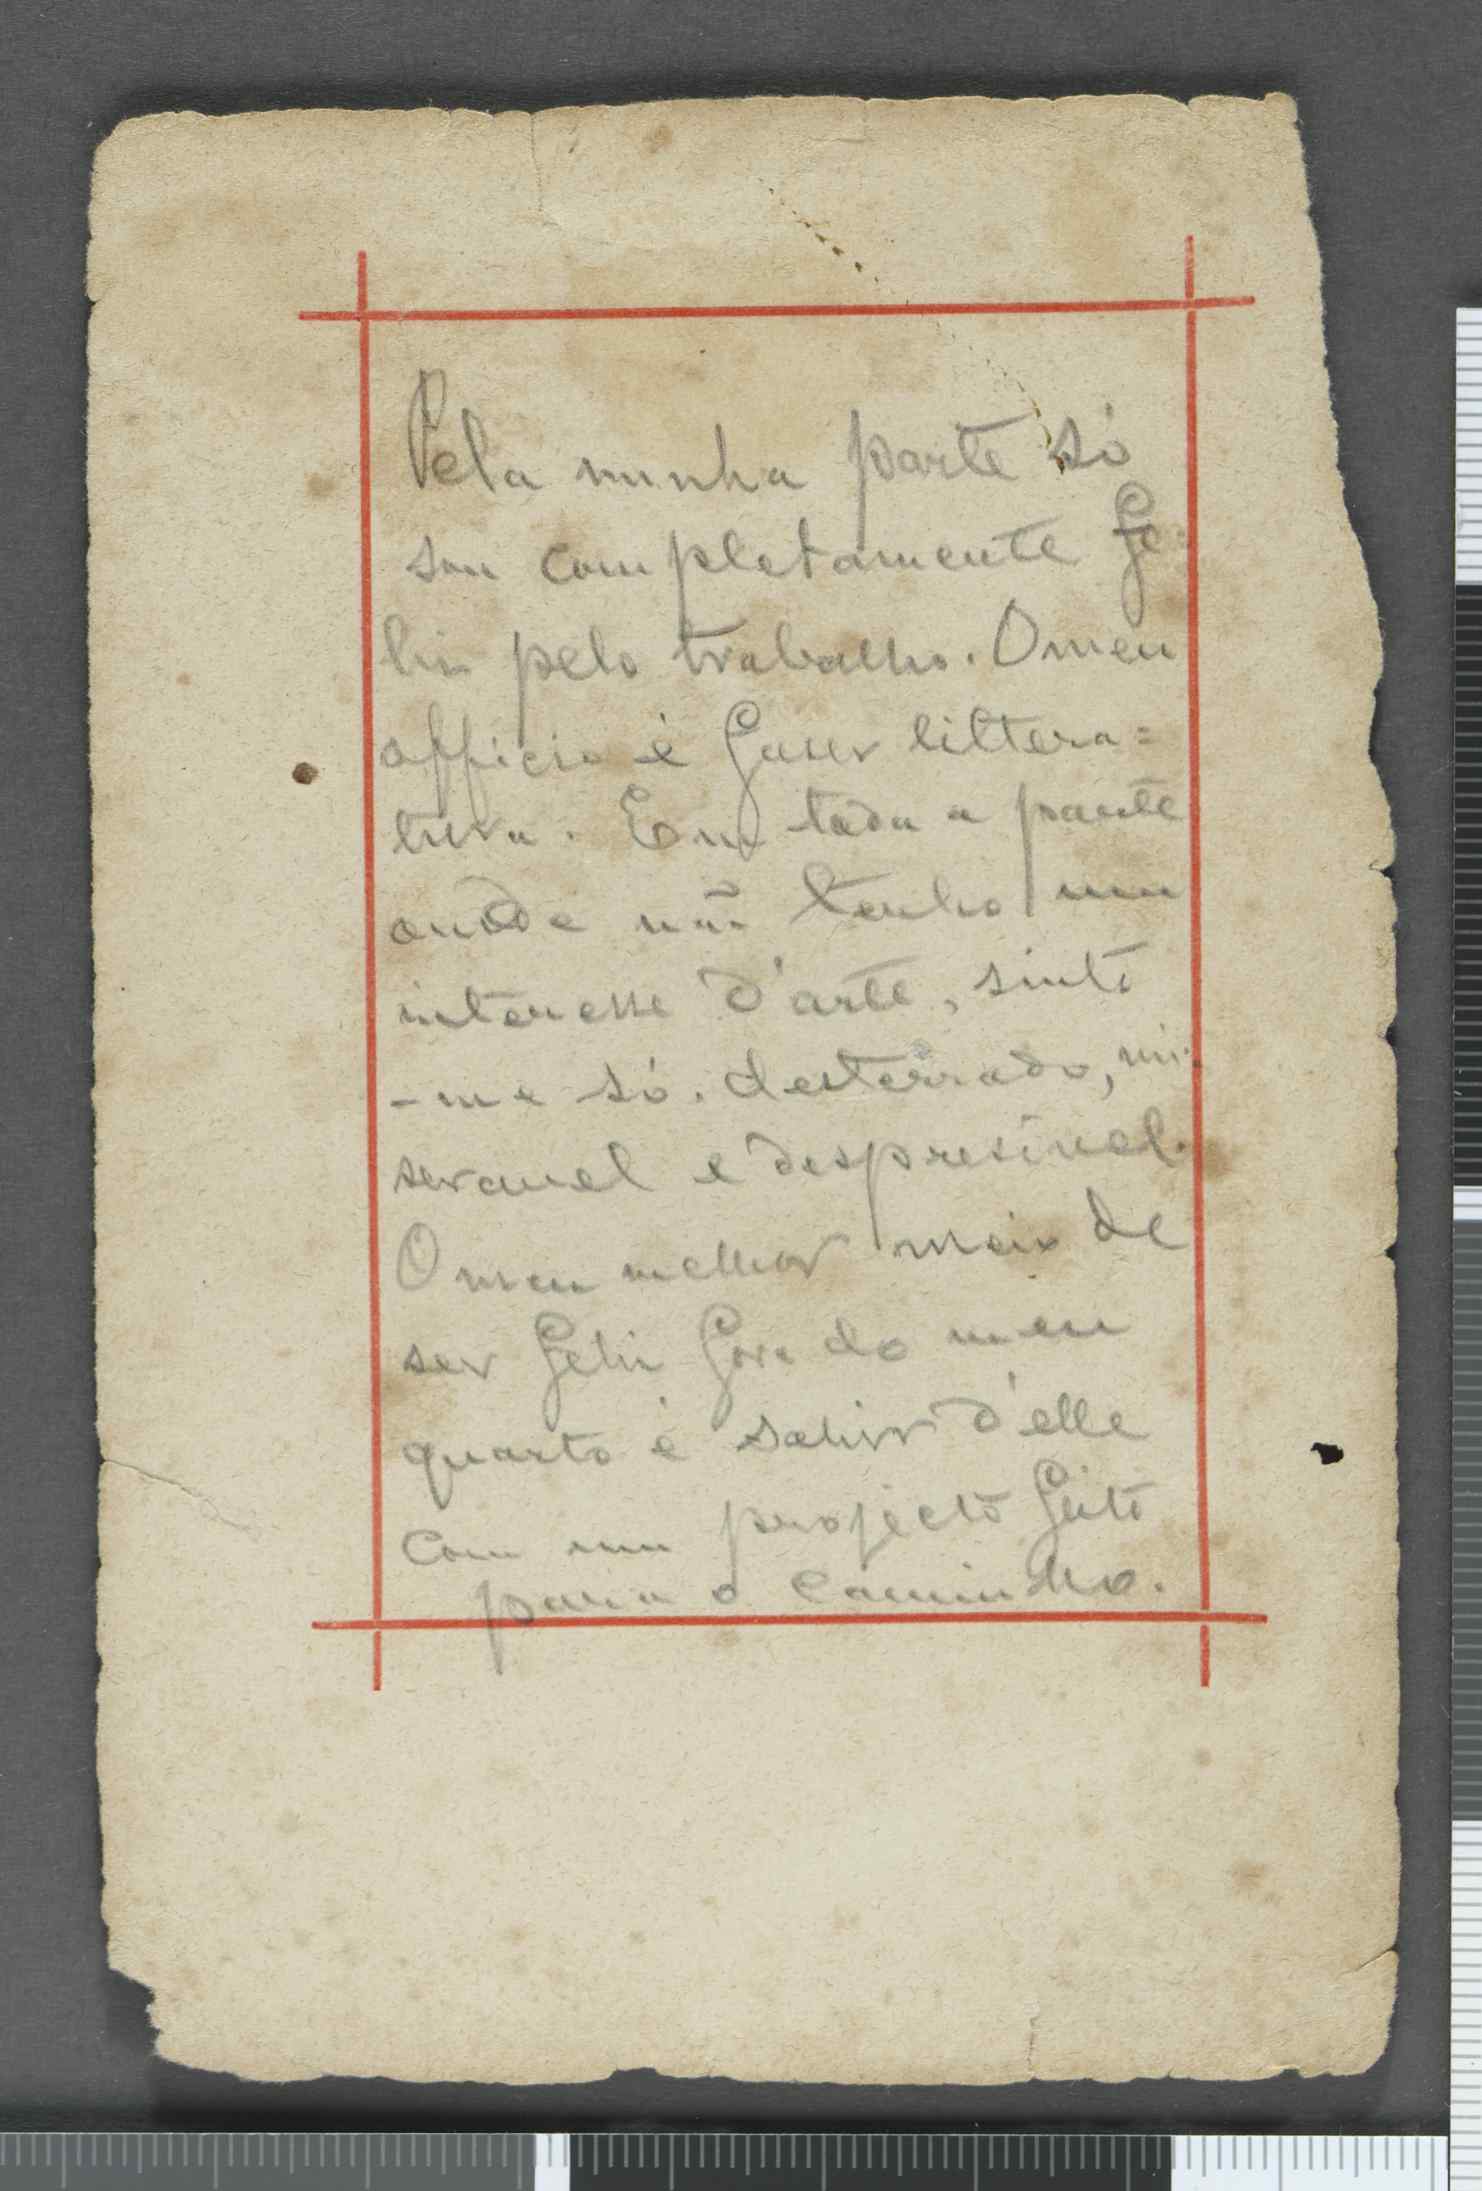 Pela minha parte só
sou completamente fe-
liz pelo trabalho. O meu
officio é fazer littera=
tura. Em toda a parte
onde não tenho um
interesse d'arte, sinto
-me só. desterrado, mi-
seravel e despresivel.
O meu melhor meio de
ser feliz fora do meu
quarto é sahir d'elle
com um projecto feito
para o caminho.